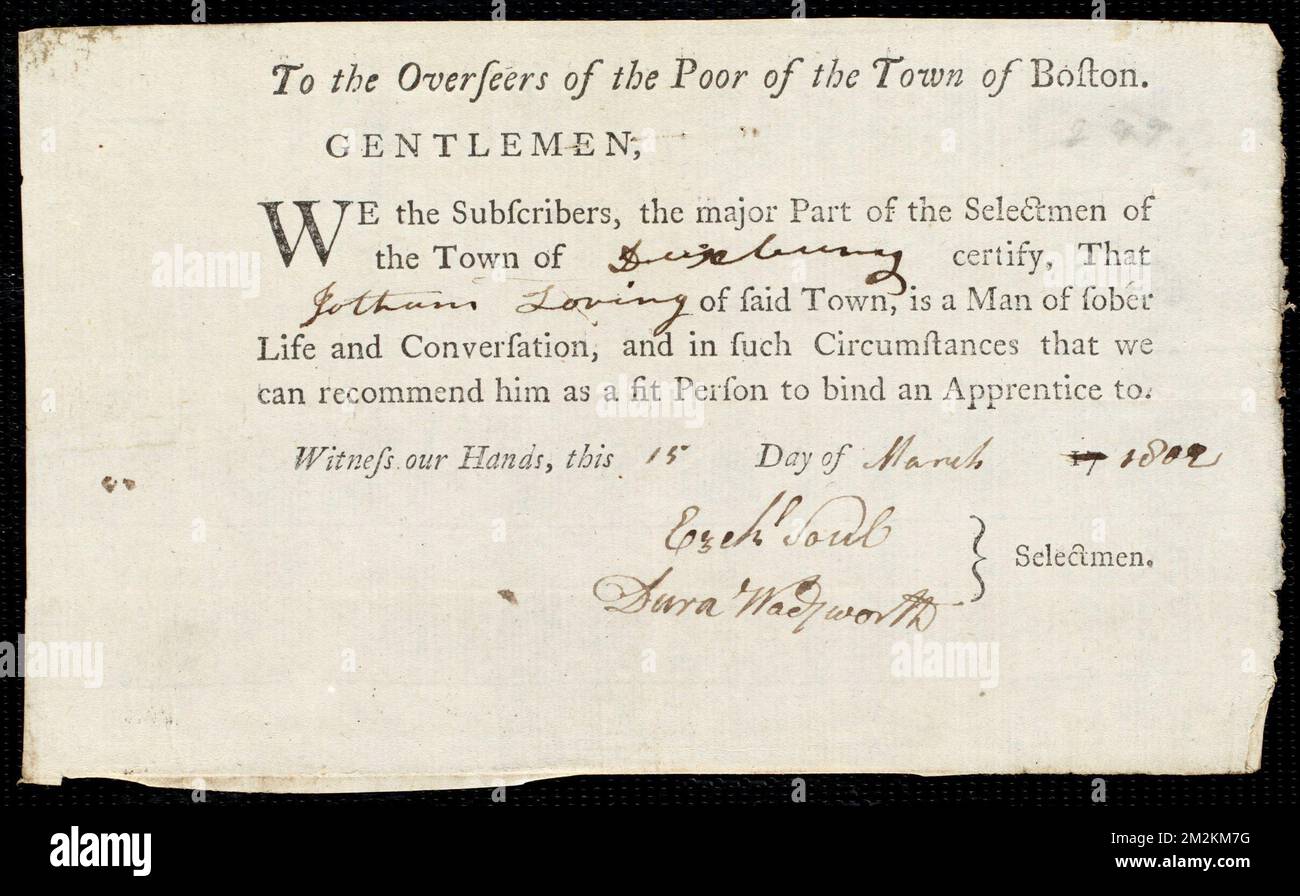 To the Overſeers of the Poor of the Town of Boſton.
GENTLEMEN,
WE the Subſcribers, the major Part of the Selectmen of
the Town of Duxbury certify, That
Jotham Loving of ſaid Town, is a Man of ſober
Life and Converſation, and in ſuch Circumſtances that we
can recommend him as a fit Perſon to bind an Apprentice to.
Witneſs our Hands, this 15 Day of March 17 1802
Ezekl Soul
Dura Wadsworth
Selectmen.
alamy
Image ID: 2M2KM7G
www.alamy.com